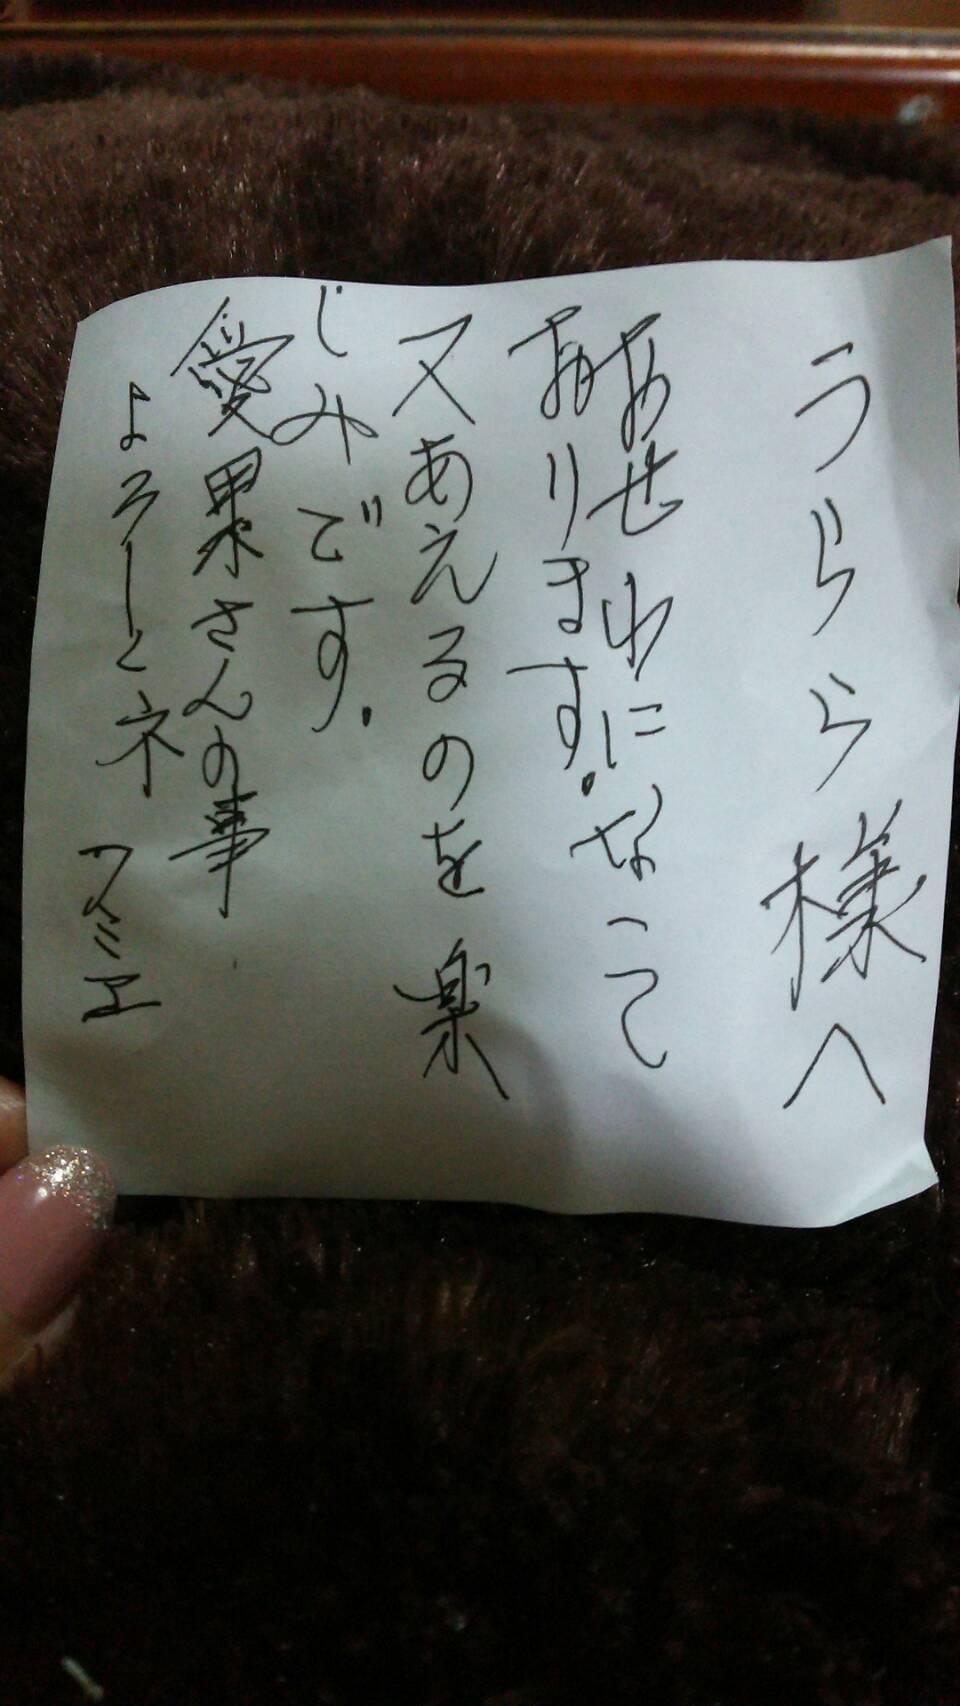 うらら様へ
おせわになって
おります.
又あえるのを楽
じみです.
愛果さんの事
よろしとネ
フミエ